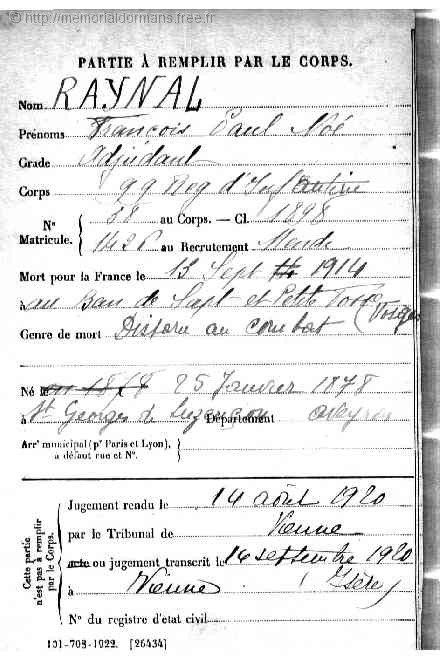 © http://memorialdormans.free.fr
PARTIE À REMPLIR PAR LE CORPS.
Nom RAYNAL
Prénoms François Paul Noé
Grade Adjudant
Corps 99 Reg d'Infanterie
N° Matricule. { 38 au Corps. — Cl. 1898
1426 au Recrutement Mende
Mort pour la France le 13 Sept 14 1914
à au Ban de Sapt et Petite Fosse (Vosges
Genre de mort Disparu au combat
Né le en 1878 25 Janvier 1878
à St Georges de Luzençon Département Aveyron
Arrt municipal (pr Paris et Lyon), à défaut rue et N°. {
Cette partie n'est pas à remplir par le Corps. {
Jugement rendu le 14 août 1920
par le Tribunal de Vienne
acte ou jugement transcrit le 14 septembre 1920
à Vienne (Isère)
N° du registre d'état civil
101-708-1922. [26434]